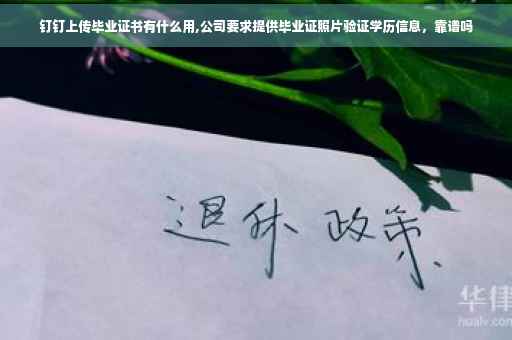 钉钉上传毕业证书有什么用,公司要求提供毕业证照片验证学历信息，靠谱吗
退休 政策
华律
hualv.com